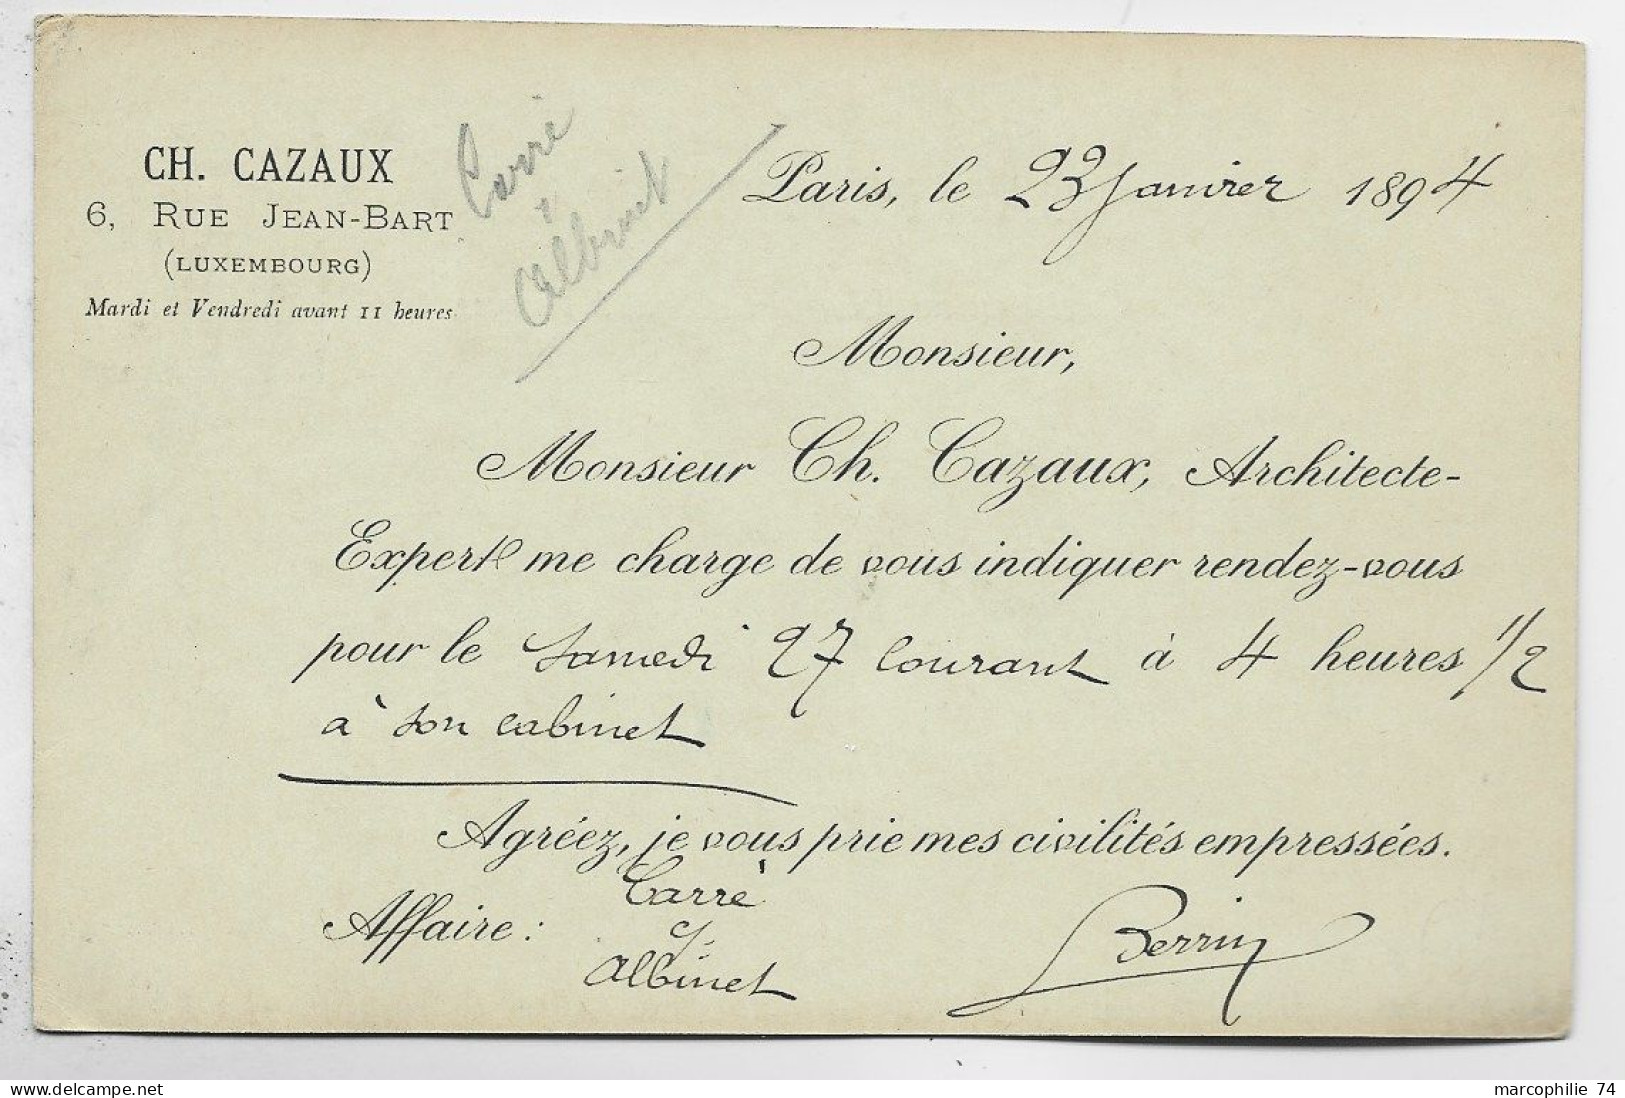 CH. CAZAUX
6, RUE JEAN-BART
(LUXEMBOURG)
Mardi et Vendredi avant 11 heures
Carré
Albinet
Paris, le 23 Janvier 1894
Monsieur,
Monsieur Ch. Cazaux, Architecte-
Expert me charge de vous indiquer rendez-vous
pour le Samedi 27 Courant à 4 heures 1/2
à son cabinet
Agréez, je vous prie mes civilités empressées.
Carré
Affaire : c/.
Albinet
Berrin
www.delcampe.net
marcophilie 74